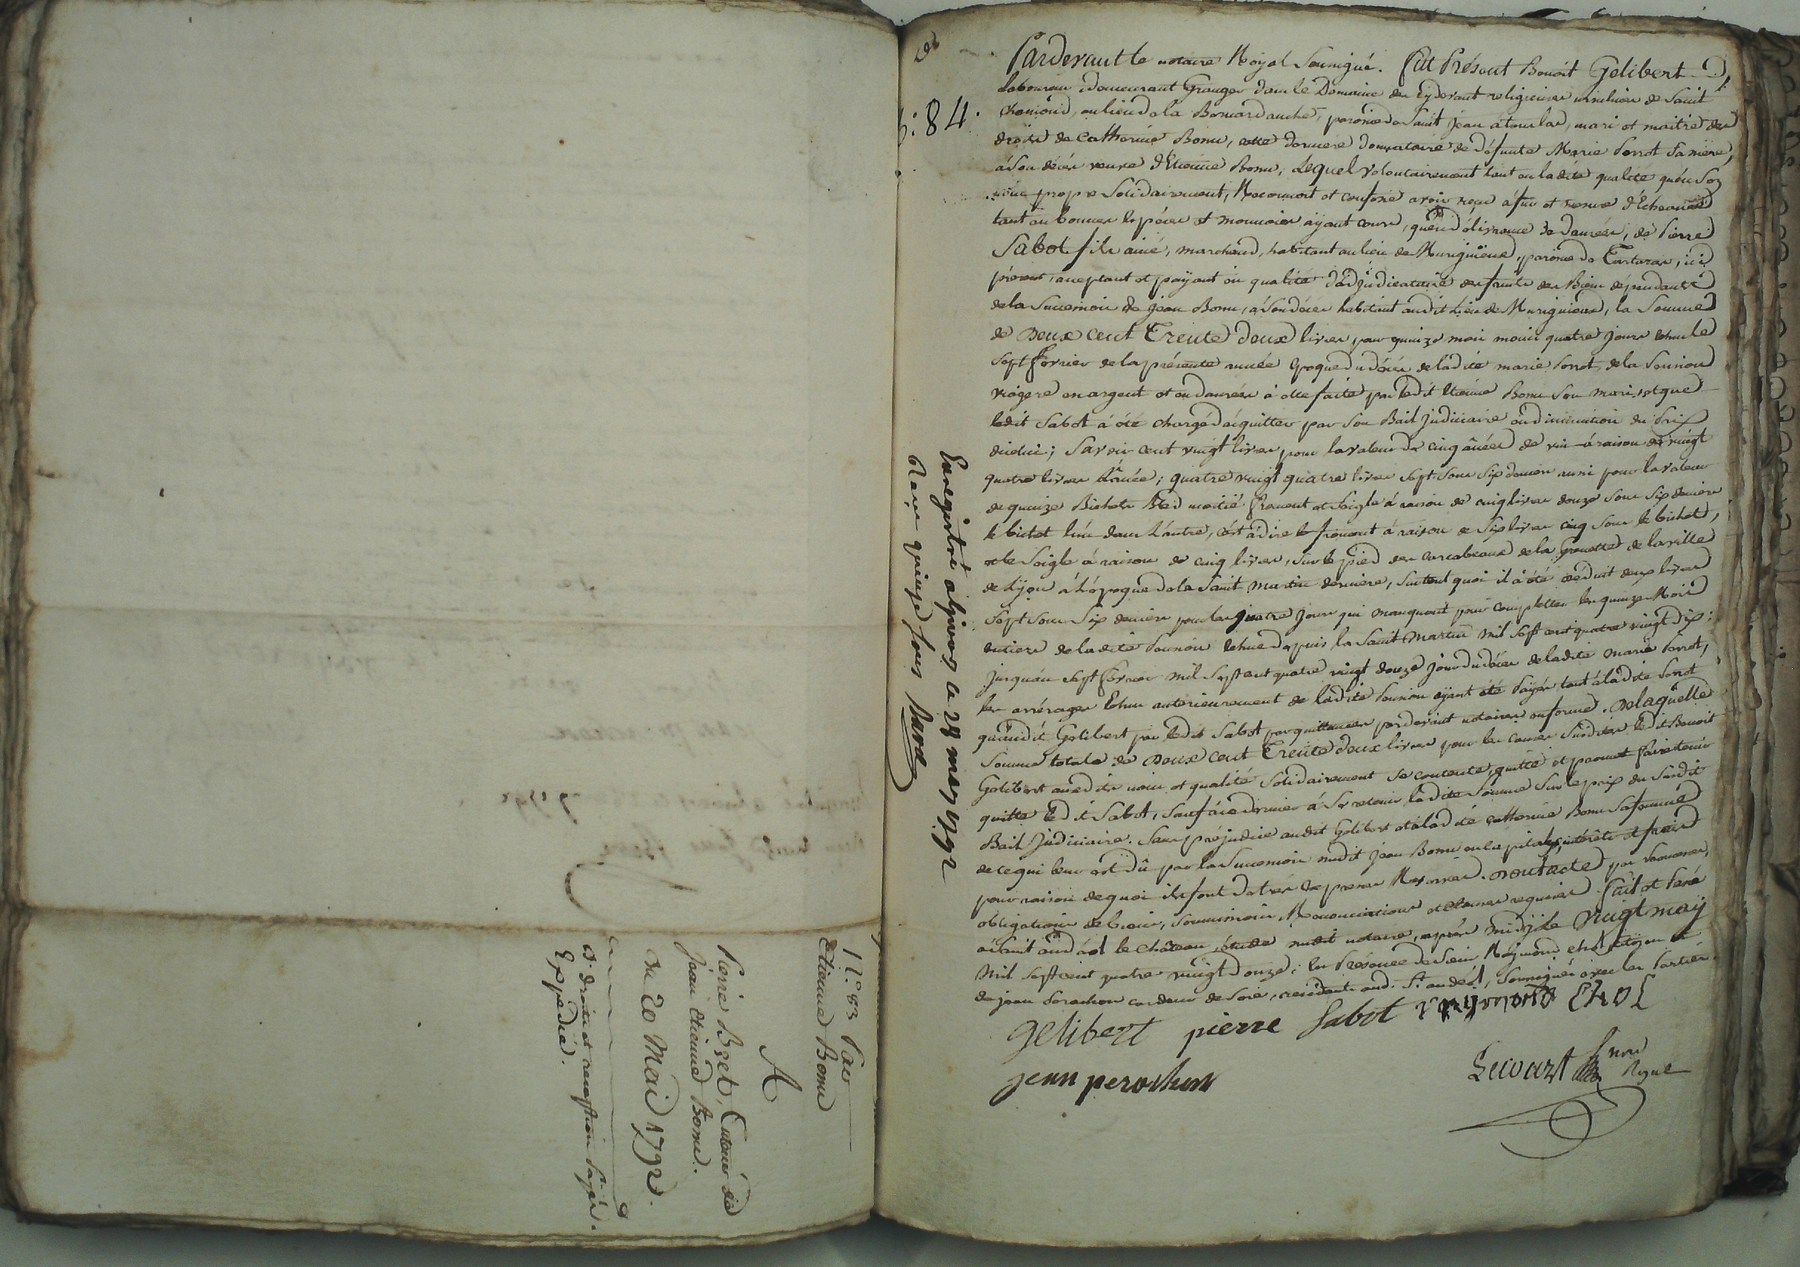 N.° 83 Par
Etienne Bonu
A
Pierre Bret, Curé de
Jean Etienne Bonu.
du 20 Mai 1792.
Expédié.
84.
Pardevant le notaire Royal Soussigné. fut Présent Benoit Gelibert
laboureur demeurant Granger dans le Domaine des cydevant religieuses de Saint
Chamond, au lieu de la Bonnardanche, paroisse de Saint Jean a toulas, mari et maitre des
droits de Catherine Bonu, cette derniere donnataire de défunte Marie Porrot sa mere,
à son décés veuve d'Etienne Bonu, Lequel volontairement tant en ladite qualité qu'en son
nom propre solidairement, Reconnoit et confesse avoir reçu
tant en bonnes Especes et monnoies ayant cours, qu'en délivrance de danrées, de Pierre
Sabot fils ainé, marchand, habitant au lieu de Murigneux, paroisse de Tartaras, ici
présent, acceptant et payant en qualité d'adjudicataire des fruits des Biens dépendants
de la Succession de Jean Bonu, à son décés habitant audit Lieu de Murigneux, la Somme
de Deux cent Trente deux livres pour quinze mois moins quatre jours échus le
Sept fevrier de la présente année Epoque du décés de ladite marie Porrot, de la Pension
viagere en argent et en danrées à elle faite par ledit Etienne Bonu Son mari, et que
ledit Sabot à été chargé d'acquitter par Son Bail Judiciaire en diminution du Prix
d'icelui; Savoir cent vingt livres pour la valeur de cinq ânées de vin à raison de vingt
quatre livres L'ânée; quatre vingt quatre livres sept Sous Six deniers aussi pour la valeur
de quinze Bichets Bled moitié froment et Seigle à raison de cinq livres douze Sous Six deniers
le bichet L'un dans L'autre, c'est à dire le froment à raison de Six livres cinq Sous le bichet,
et le Seigle à raison de cinq livres, sur le pied des carcabeaux de la Grenette de la ville
de Lyon à L'époque de la Saint Martin derniere, Surtout quoi il à été déduit deux livres
Sept Sous Six deniers pour les quatre jours qui manquent pour completter les quinze Mois
entiers de ladite Pension échue depuis la Saint Martin mil sept cent quatre vingt dix;
jusqu'au sept fevrier mil sept cent quatre vingt douze jour du décés de ladite marie Porrot,
les arrérages Echus anterieurement de ladite Pension ayant été Payés tant à ladite Porrot
qu'audit Gelibert par ledit Sabot par quittances pardevant notaires en forme. De laquelle
Somme totale de Deux cent Trente deux livres pour les causes Susdites ledit Benoit
Gelibert auxdits nom et qualité Solidairement Se contente, quitte et promet faire tenir
quitte ledit Sabot, Sauf à ce dernier à Se retenir ladite Somme Sur le prix du Susdit
Bail Judiciaire. Sans préjudice audit Gelibert et à ladite catherine Bonu Sa femme
de ce qui leur est Dû par la Succession dudit Jean Bonu en capitaux, intérêts et frais
pour raison de quoi ils font toutes Expresses Reserves. Dont acte
obligation de biens, Soumissions, Renonciations et clauses requises. fait et Passé
à Saint andéol le Château Etude dudit notaire, après midy le Vingt may
mil Sept cent quatre vingt douze; en Présence de Sieur Raymond Chol citoyen et
de Jean Perachon cardeur de Soie, residents aud. St. andéol, Soussignés avec les Parties.
gelibert pierre Sabot raymond Chol
jean perochon
Lecourt
nore
Royal
Enregistré a givors ce 28 may 1792
Reçu quinze sous